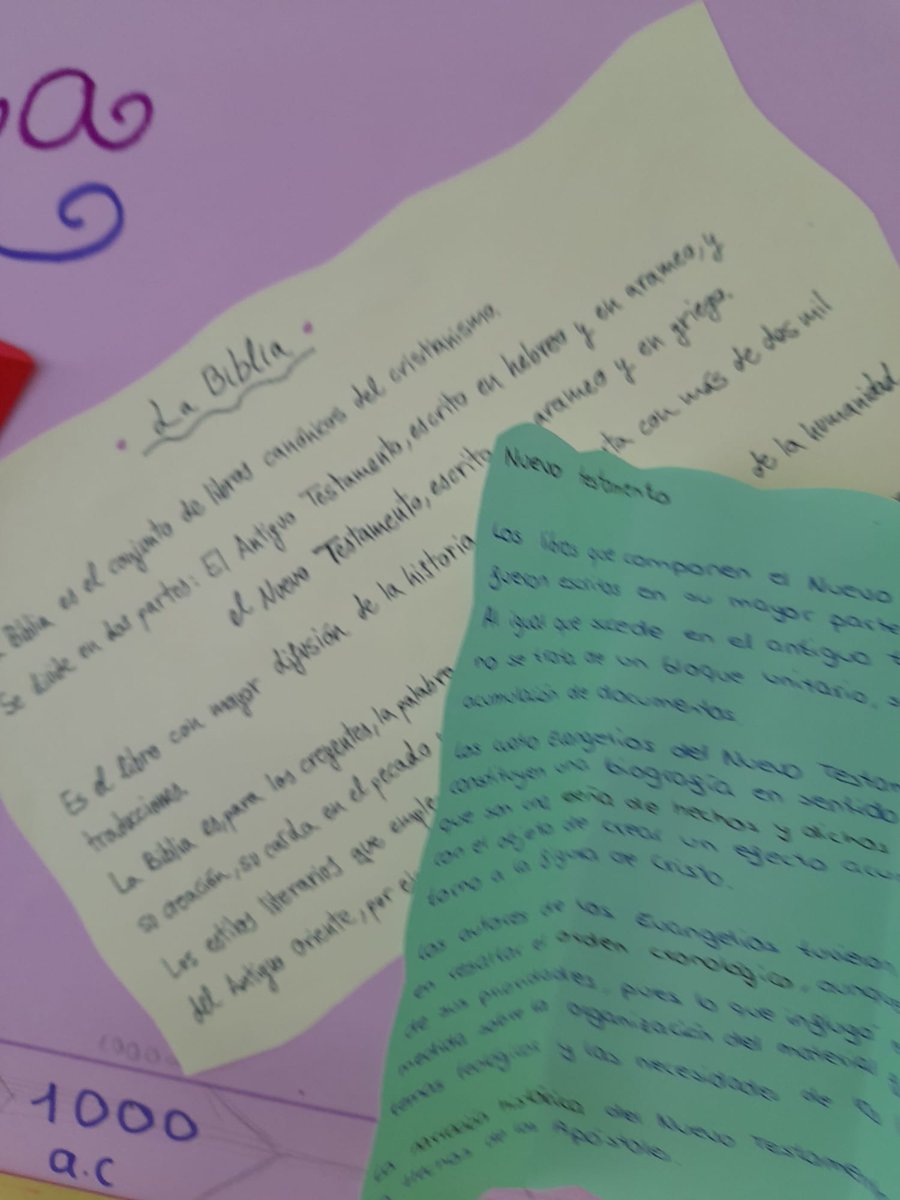 a
La Biblia
Biblia es el conjunto de libros canónicos del cristianismo.
Se divide en dos partes: El Antiguo Testamento, escrito en hebreo y en arameo, y
el Nuevo Testamento, escrito arameo y en griego.
Es el libro con mayor difusión de la historia con más de dos mil
traducciones.
La Biblia es, para los creyentes, la palabra de la humanidad
su creación, su caída en el pecado
Los estilos literarios que
del Antiguo oriente, por
Nuevo testamento
Los libros que componen el Nuevo
fueron escritos en su mayor parte
Al igual que sucede en el antiguo
no se trata de un bloque unitario,
acumulación de documentos.
Los cuatro Evangelios del Nuevo
constituyen una biografía en sentido
que son una serie de hechos y dichos
con el objeto de crear un efecto
torno a la figura de Cristo.
Los autores de los Evangelios tuvieron
en resaltar el orden cronológico,
de sus prioridades, pues lo que influyó
medida sobre la organización del material
temas teológicos y las necesidades de
La narración histórica del Nuevo
de los Apóstoles.
1000
1000
a.c